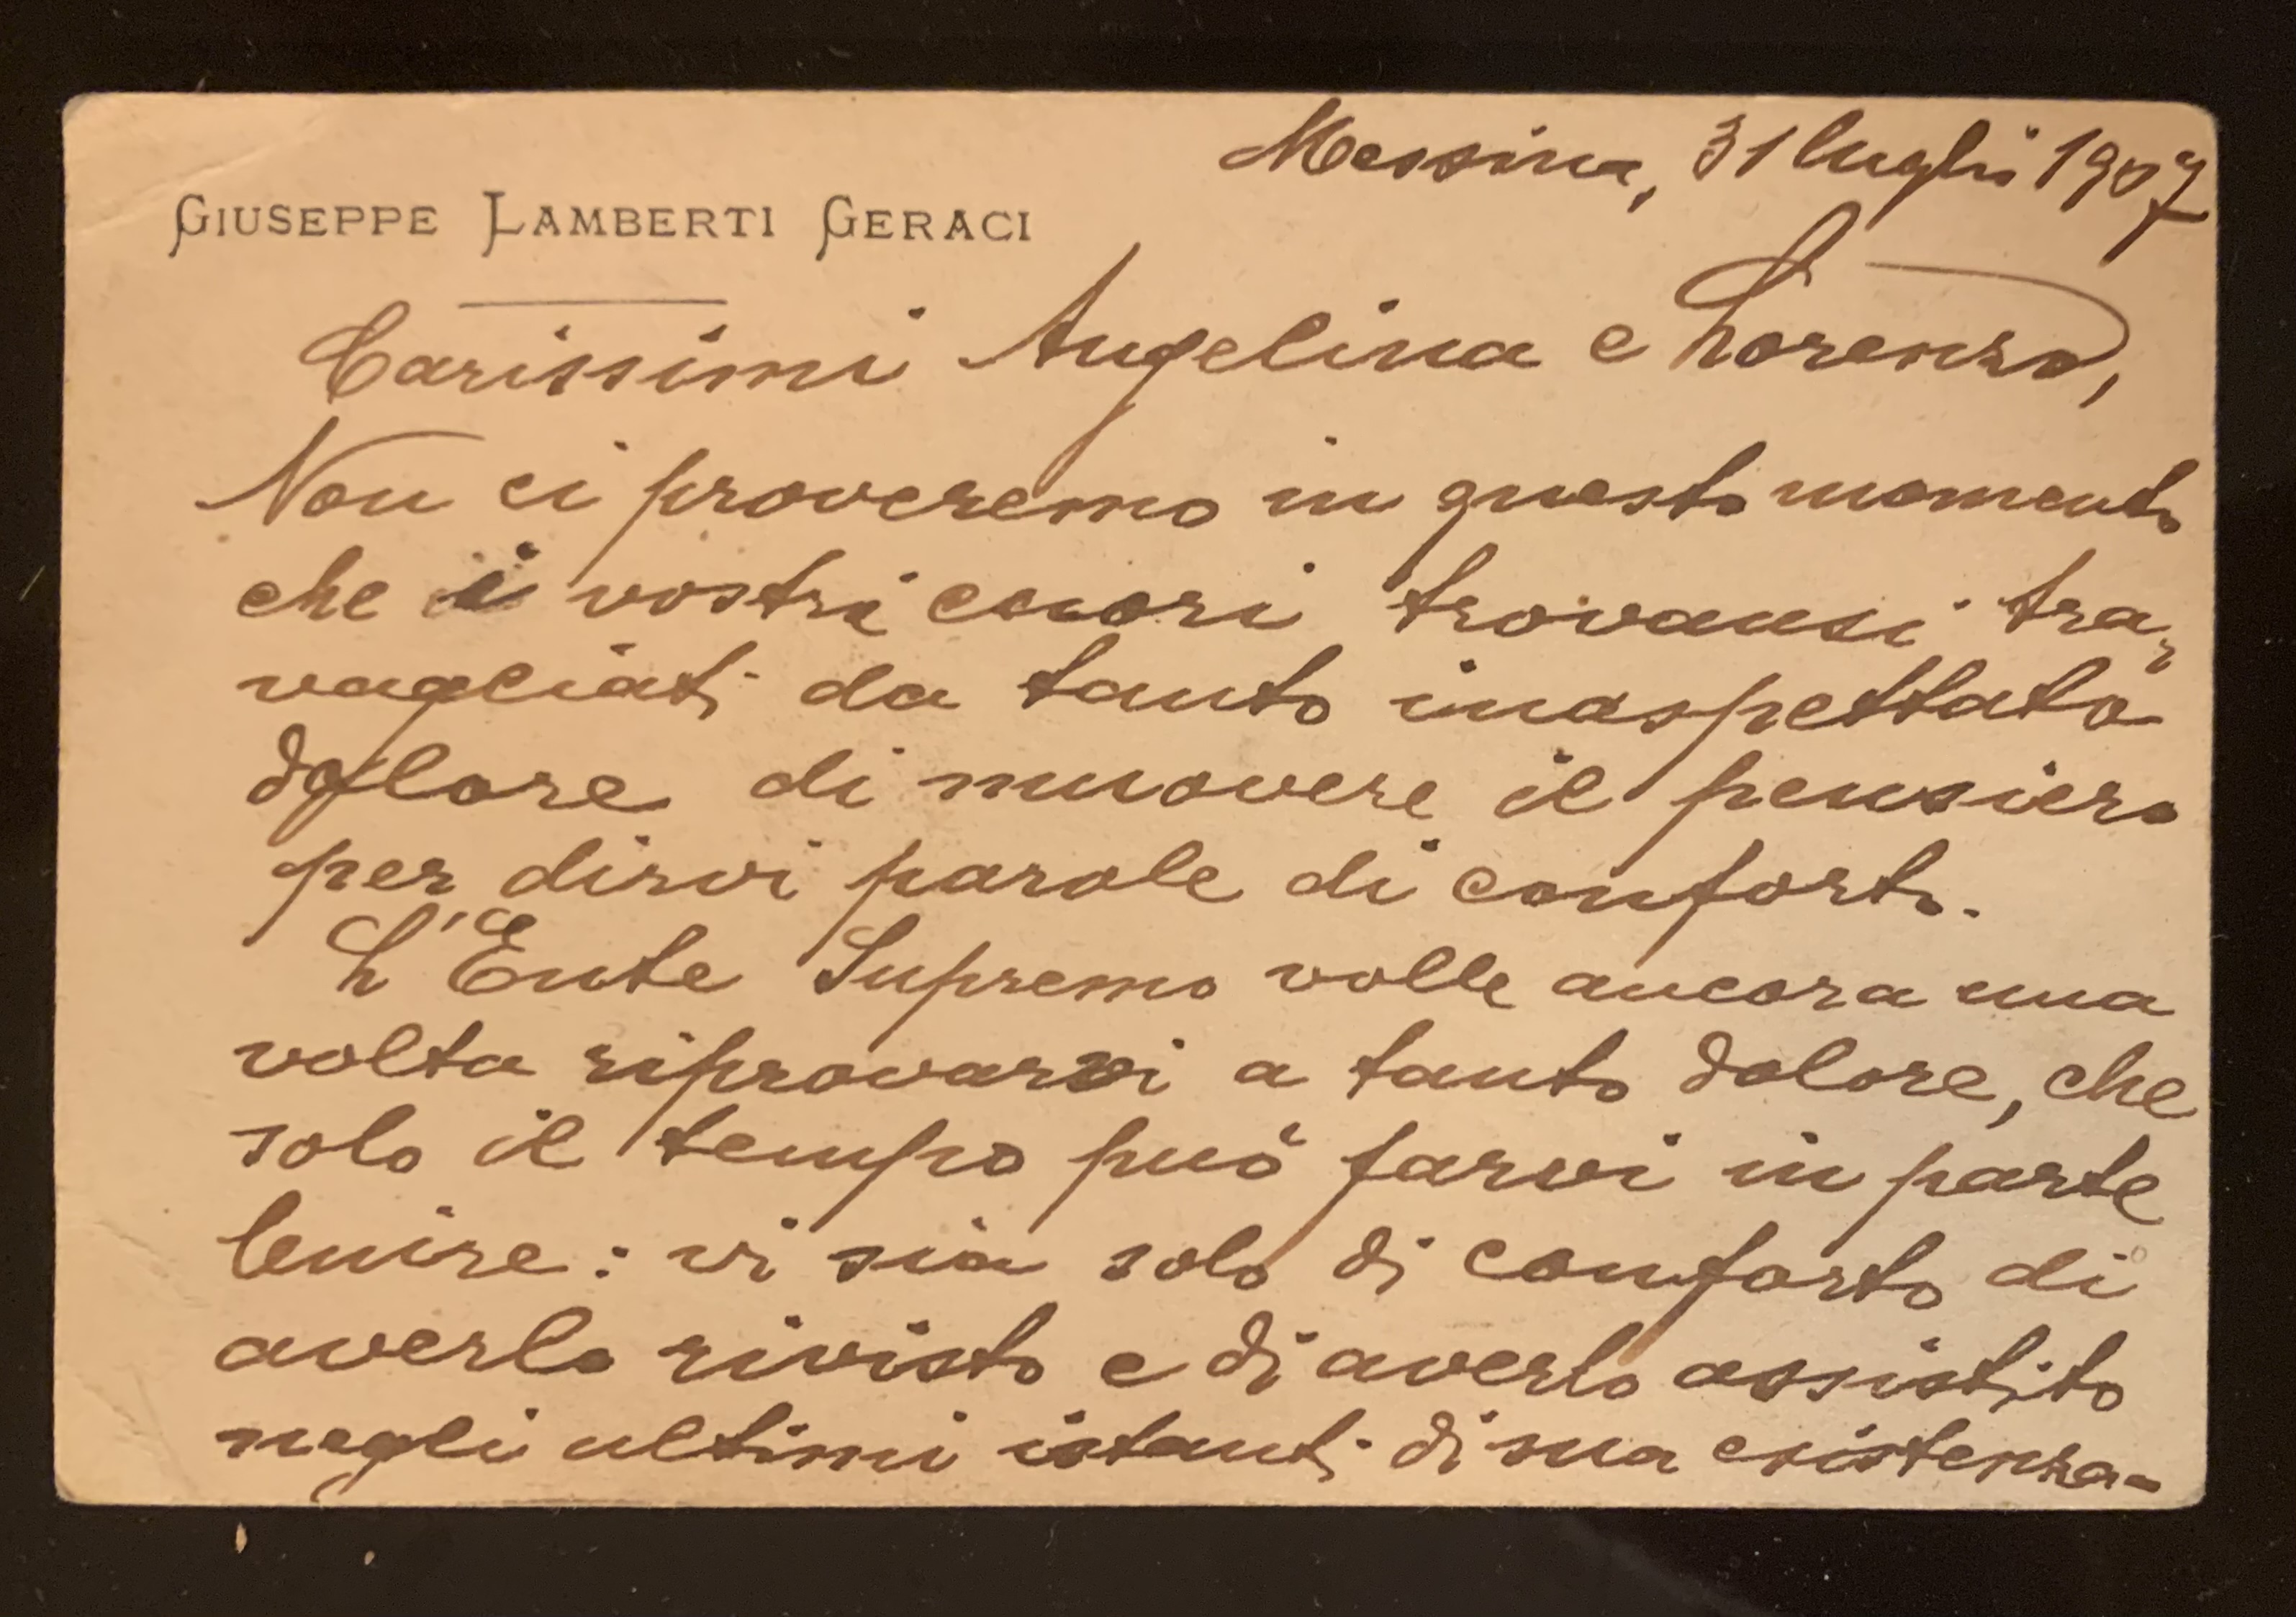 Messina, 31 luglio 1907
GIUSEPPE LAMBERTI GERACI
Carissimi Angelina e Lorenzo,
Non ci proveremo in questo momento
che i vostri cuori trovansi tra-
vagliati da tanto inaspettato
dolore di muovere il pensiero
per dirvi parole di conforto.
L'Ente Supremo volle ancora una
volta riprovarvi a tanto dolore, che
solo il tempo può farvi in parte
lenire: vi sia solo di conforto di
averlo rivisto e di averlo assistito
negli ultimi istanti di sua esistenza-